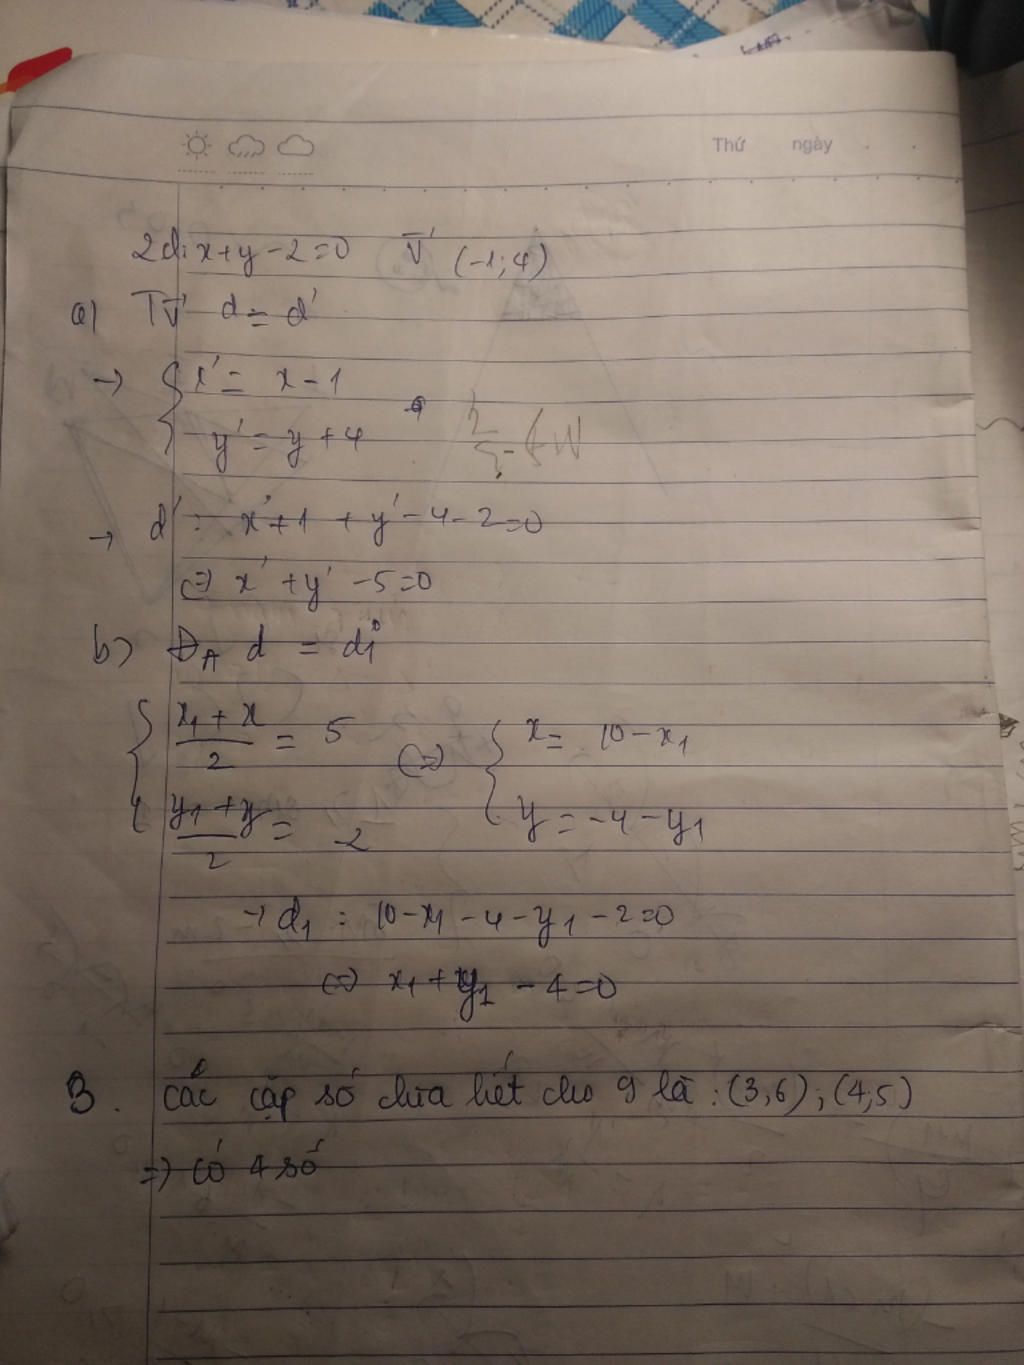 Thứ ngày
2 d: x+y-2=0 V (-1;4)
a) TV d = d'
→ { x' = x - 1
y' = y + 4
→ d' : x'+1 + y'-4-2=0
(=) x' + y' - 5=0
b) ĐA d = d1
{ x1 + x / 2 = 5 (=) { x = 10 - x1
y1 + y / 2 = -2 y = -4 - y1
→ d1 : 10-x1 - 4 - y1 - 2=0
(=) x1 + y1 - 4=0
3. Các cặp số chia hết cho 9 là : (3,6) ; (4,5)
=) có 4 số